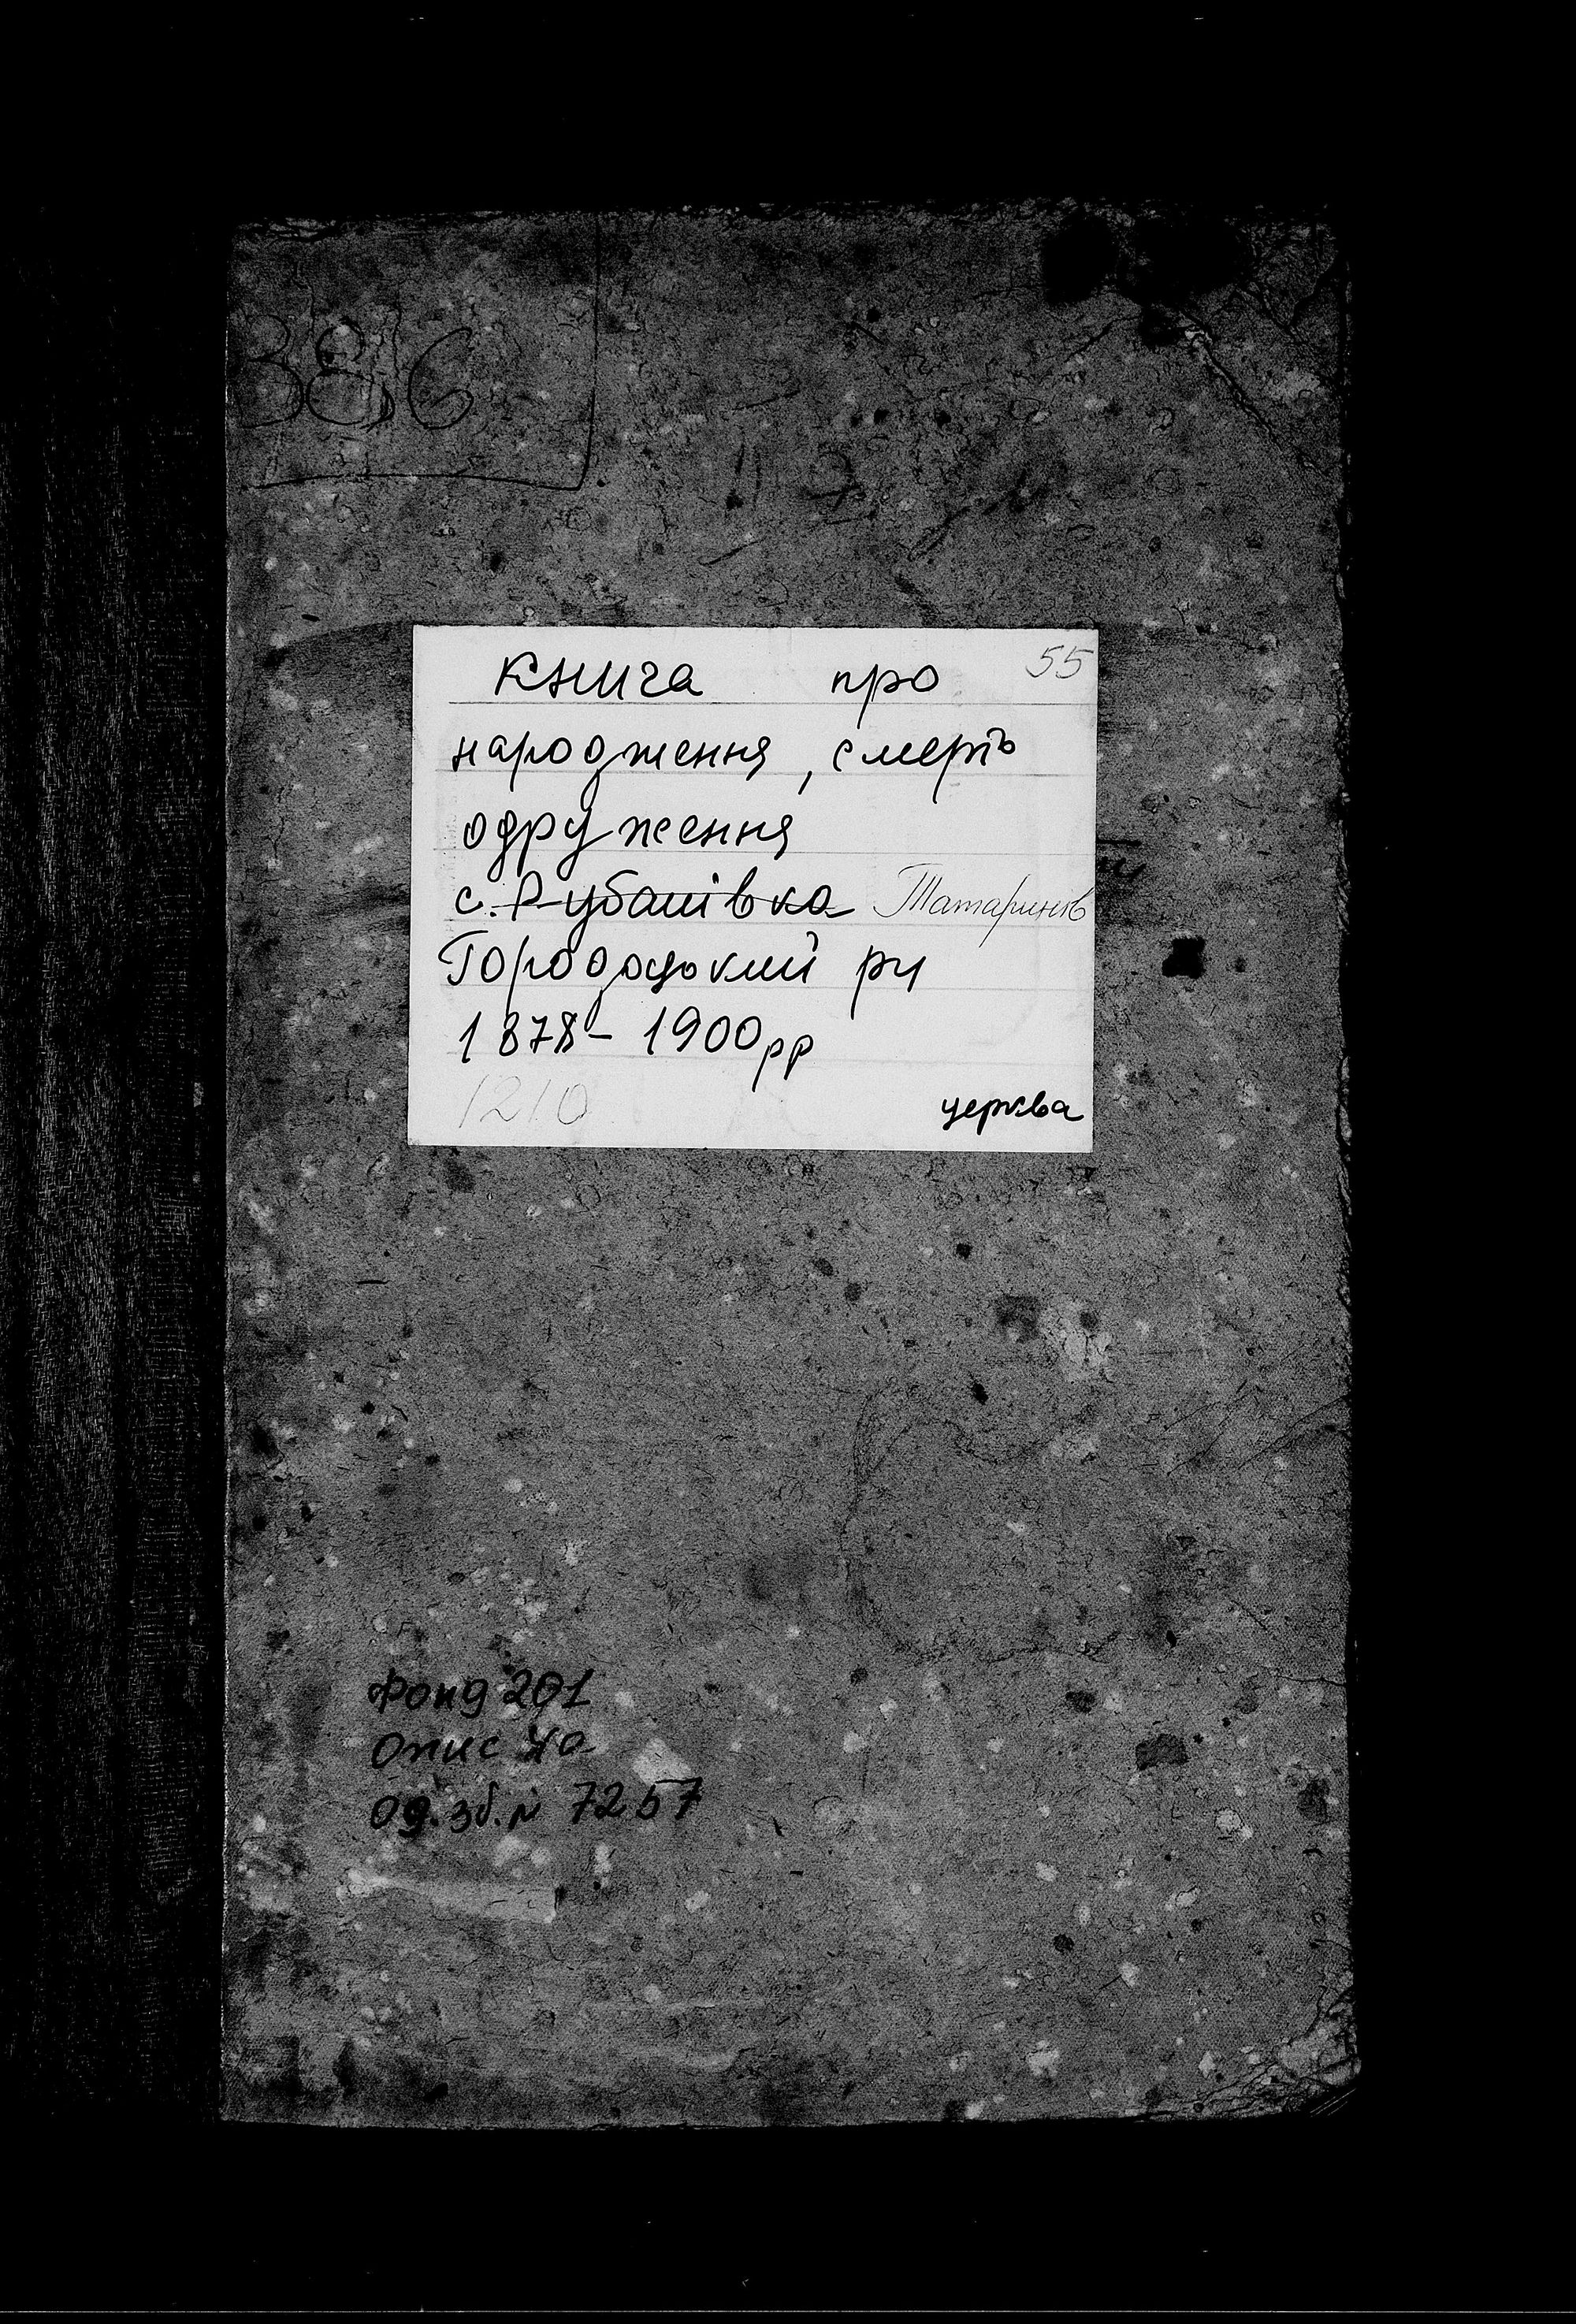 386
55
Книга про
народження, смерть
одруження
с. Рубанівка Татаринів
Городоцький рн
1878 - 1900рр
1210
церква
Фонд 201
Опис 4а
Од. зб. № 7257